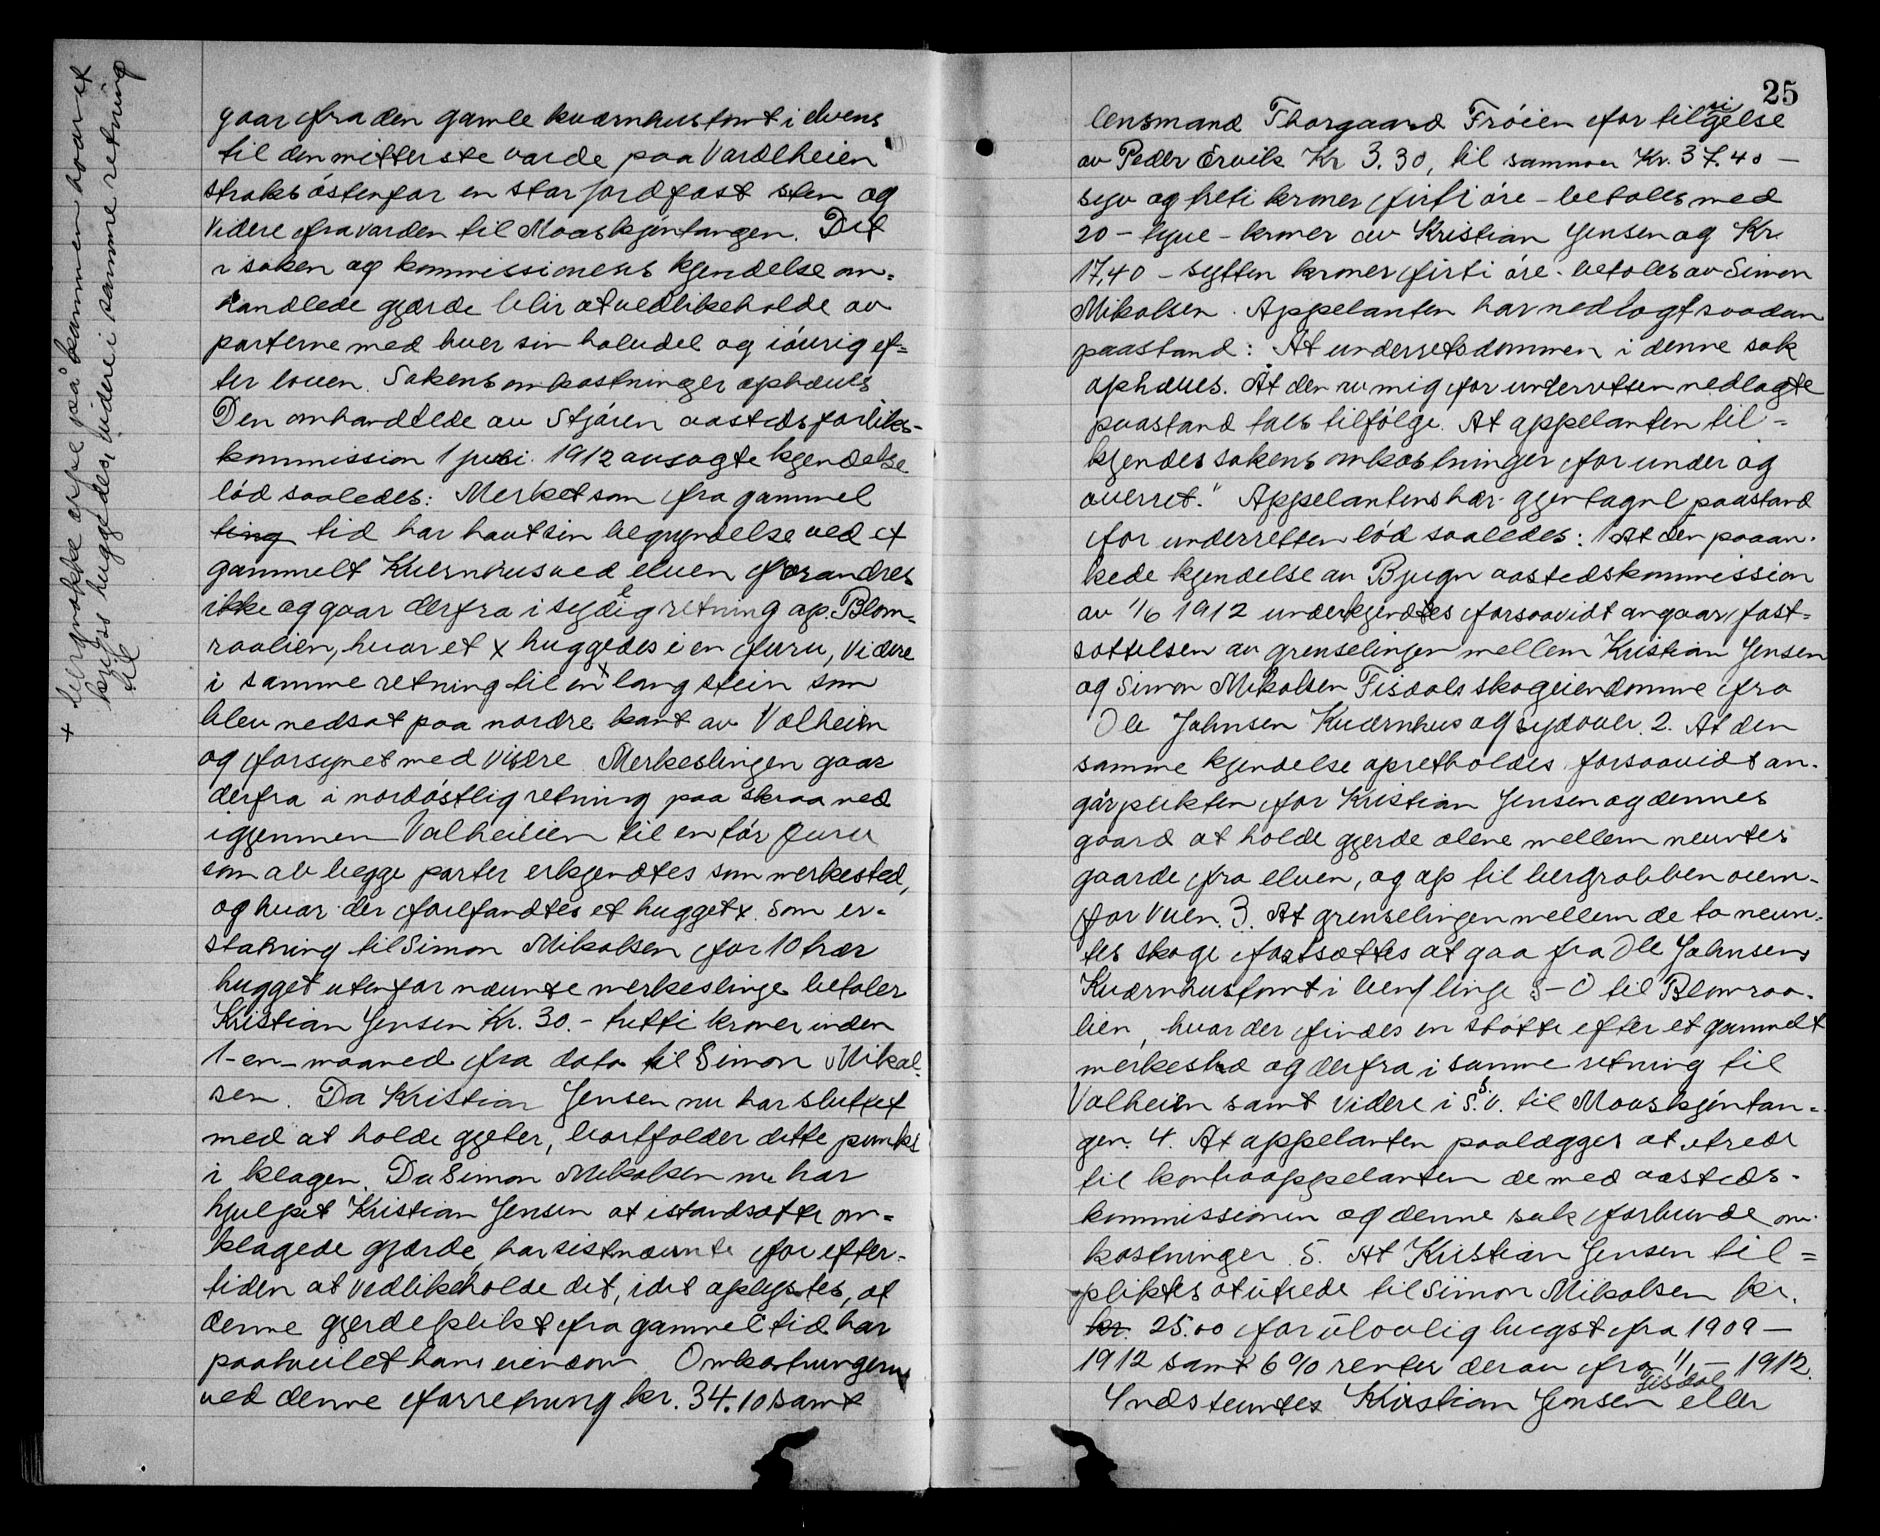 + bergnakke oppe på kammen hvor et
kryss huggedes, videre i samme retning
til
gaar fra den gamle kværnhustomt i elvens
til den mitterste varde paa Vardheien
straks østenfor en stor jordfast sten og
videre fra varden til Maaskjøntangen. Det
i saken og kommissionens kjendelse om-
handlede gjærde blir at vedlikeholde av
parterne med hver sin halvdel og iøvrig ef-
ter loven. Sakens omkostninger ophæves
Den omhandlede av Stjøren aastedsforliks-
kommission 1 juni 1912 avsagte kjendelse
lød saaledes: Merket som fra gammel
ting tid har havt sin begyndelse ved et
gammelt Kvernhus ved elven forandres
ikke og gaar derfra i sydlig retning op Blom-
raalien, hvor et x huggedes i en furu, videre
i samme retning til en + lang stein som
blev nedsat paa nordre kant av Valheien
og forsynet med visere Merkeslinjen gaar
derfra i nordøstlig retning paa skraa ned
igjennem Valheilien til en tør furu
som av begge parter erkjendtes som merkested,
og hvor der forefandtes et hugget x. Som er-
statning til Simon Mikalsen for 10 trær
hugget utenfor nævnte merkeslinje betaler
Kristian Jensen Kr. 30.- tretti kroner inden
1-en- maaned fra dato til Simon Mikal-
sen. Da Kristian Jensen nu har sluttet
med at holde gjeter, bortfalder dette punkt
i klagen. Da Simon Mikalsen nu har
hjulpet Kristian Jensen at istandsætte om-
klagede gjærde, har sistnævnte for efter-
tiden at vedlikeholde det, idet oplystes, at
denne gjerdeplikt fra gammel tid har
paahvilet hans eiendom Omkostningerne
ved denne forretning kr. 34.10 samt
25
lensmand Thorgaard Frøien for tilsigelse
av Peder Ervik Kr 3.30, til sammen Kr. 37.40 -
syv og treti kroner firti øre - betales med
20 - tyve - kroner av Kristian Jensen og Kr.
17,40 - sytten kroner firti øre - betales av Simon
Mikalsen. Appelanten har nedlagt saadan
paastand: At underretsdommen i denne sak
ophæves. At den av mig for underretten nedlagte
paastand taes tilfølge. At appelanten til-
kjendes sakens omkostninger for under og
overret." Appelantens her gjentagne paastand
for underretten lød saaledes: 1 At den paaan-
kede kjendelse av Bjugn aastedskommission
av 1/6 1912 underkjendtes forsaavidt angaar fast-
sættelsen av grenselinjen mellem Kristian Jensen
og Simon Mikalsen Fisdals skogeiendomme fra
Ole Johnsen Kværnhus og sydover. 2. At den
samme kjendelse opretholdes forsaavidt an-
går plikten for Kristian Jensen og dennes
gaard at holde gjerde alene mellem nevntes
gaarde fra elven, og op til bergrabben oven-
for veien. 3. At grenselinjen mellem de to nevn-
tes skoge fastsættes at gaa fra Ole Johnsens
Kværnhustomt i linje S-O til Blomraa-
lien, hvor der findes en støtte efter et gammelt
merkested og derfra i samme retning til
Valheien samt videre i S.S.V. til Maaskjøntan-
gen. 4. At appelanten paalægges at utrede
til kontraappelanten de med aasteds-
kommissionen og denne sak forbundne om-
kostninger. 5. At Kristian Jensen til-
pliktes at utrede til Simon Mikalsen kr.
kr. 25.00 for ulovlig hugst fra 1909 -
1912 samt 6 % renter derav fra 1/1 - 1912.
Indstevntes Kristian Jensen Fisdal eller